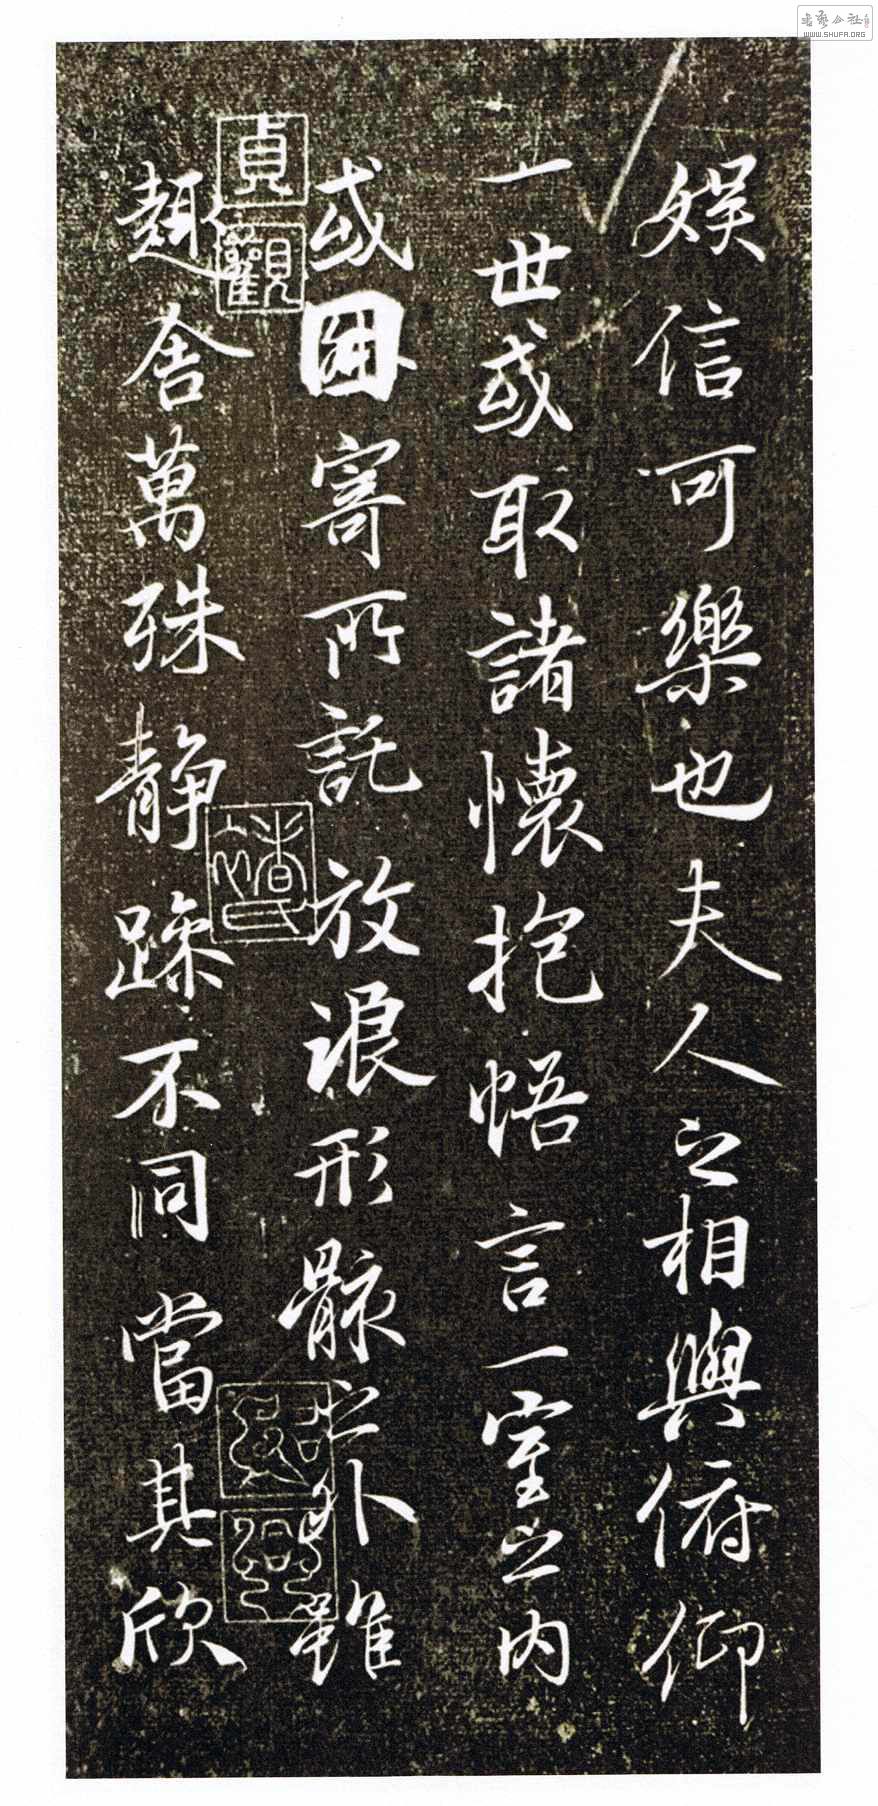 娛信可樂也夫人之相與俯仰
一世或取諸懷抱悟言一室之內
或因寄所託放浪形骸之外雖
趣舍萬殊静躁不同當其欣
貞觀
褚氏
書藝公社
WWW.SHUFA.ORG